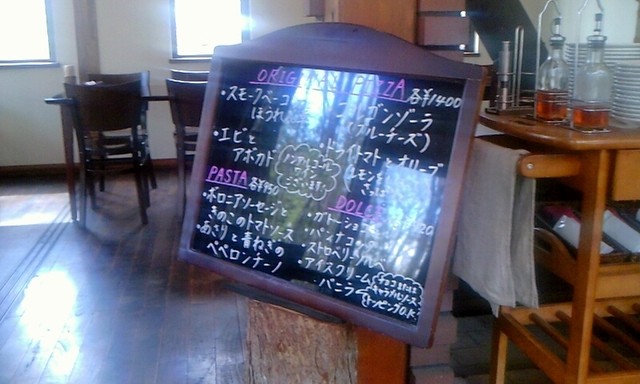 ORIGINAL PIZZA 各¥1400
・スモークベーコン
ほうれん
・エビと
アボカド
ゴルゴンゾーラ
(ブルーチーズ)
・ドライトマトとオリーブ
ノンアルコール
ワイン
ございます
PASTA
・ボローニアソーセージと
きのこのトマトソース
・あさりと青ねぎの
ペペロンチーノ
DOLCE
・ガトーショコラ
・パンナコッタ
・ストロベリーソルベ
・アイスクリーム
バニラ
チョコまたは
キャラメルソース
トッピングO.K